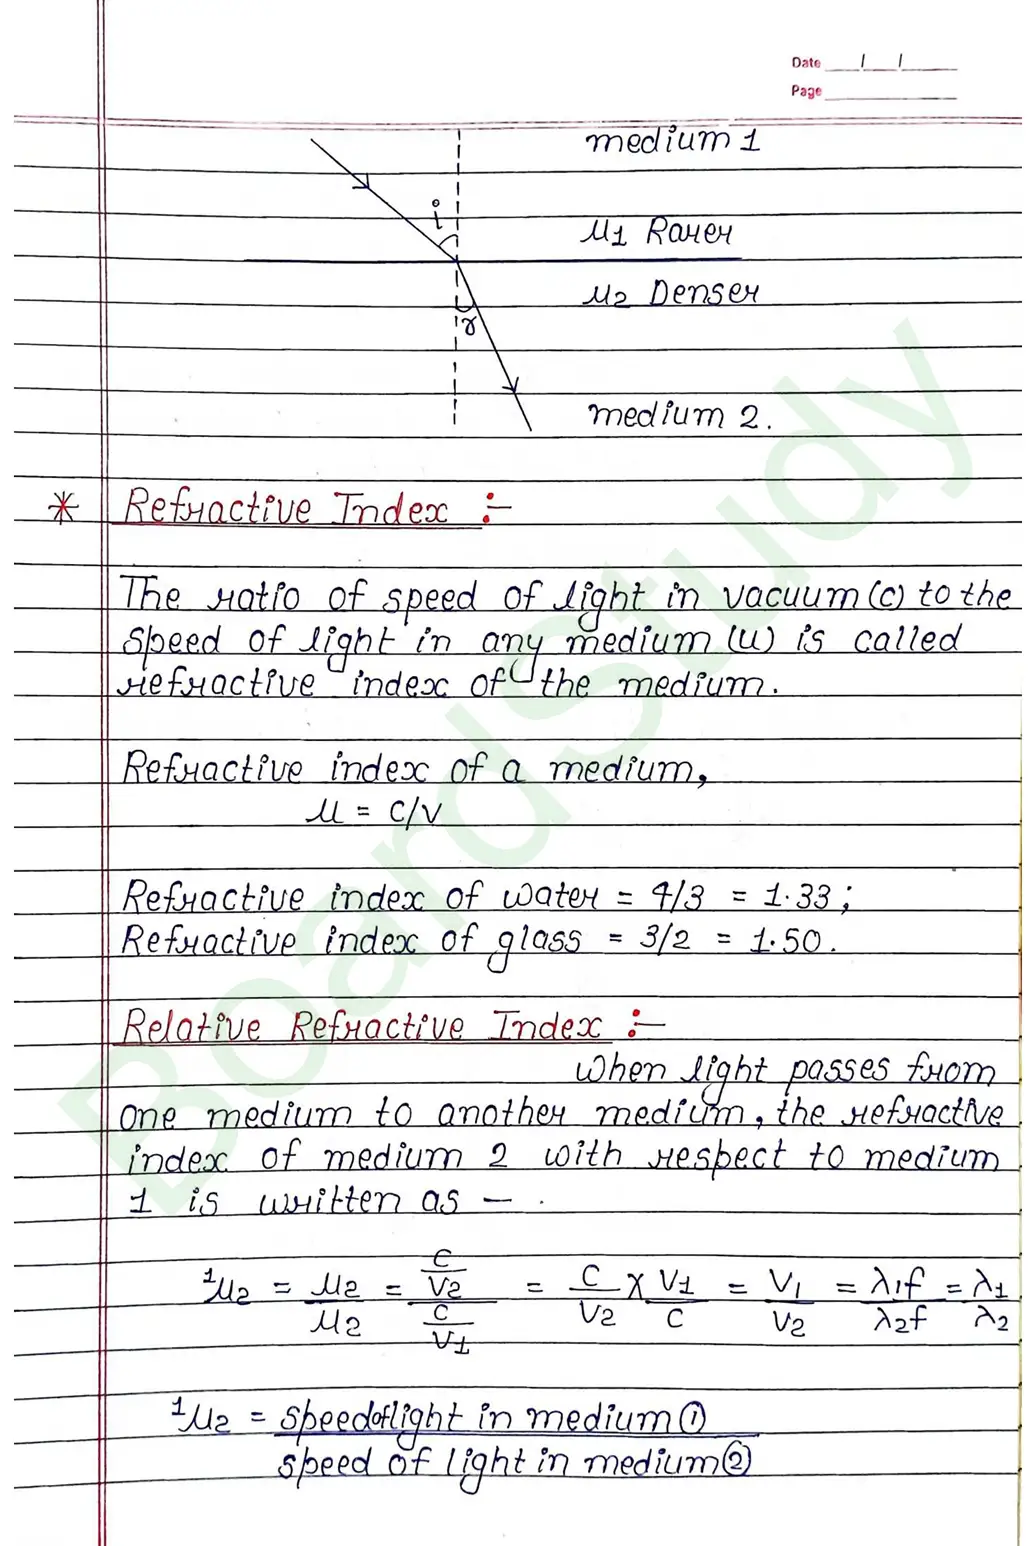 Date / /
Page
medium 1
i
μ1 Rarer
μ2 Denser
r
medium 2.
* Refractive Index :-
The ratio of speed of light in vacuum (c) to the
speed of light in any medium (u) is called
refractive index of the medium.
Refractive index of a medium,
μ = c/v
Refractive index of water = 4/3 = 1.33 ;
Refractive index of glass = 3/2 = 1.50.
Relative Refractive Index :-
When light passes from
one medium to another medium, the refractive
index of medium 2 with respect to medium
1 is written as - .
¹μ2 = μ2/μ2 = (C/V2)/(C/V1) = C/V2 × V1/C = V1/V2 = λ1f/λ2f = λ1/λ2
¹μ2 = speed of light in medium ①
speed of light in medium ②
BoardStudy